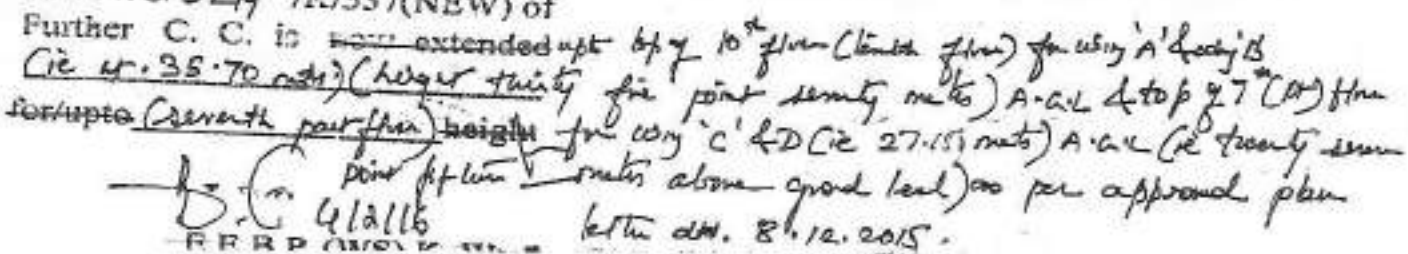 /337(NEW) of
Further C. C. is now extended upt top of 10th floor (tenth floor) for wing 'A' & wing 'B'
(ie ht. 35.70 mts) (height thirty five point seventy mts) A.G.L & top of 7th (pt) floor
for/upto (seventh part floor) height for wing 'C' & D (ie 27.15 mets) A.G.L (ie twenty seven
point fifteen meters above ground level) as per approved plan
4/2/16 letter dtd. 8.12.2015.
E.E.B.P. (WS)